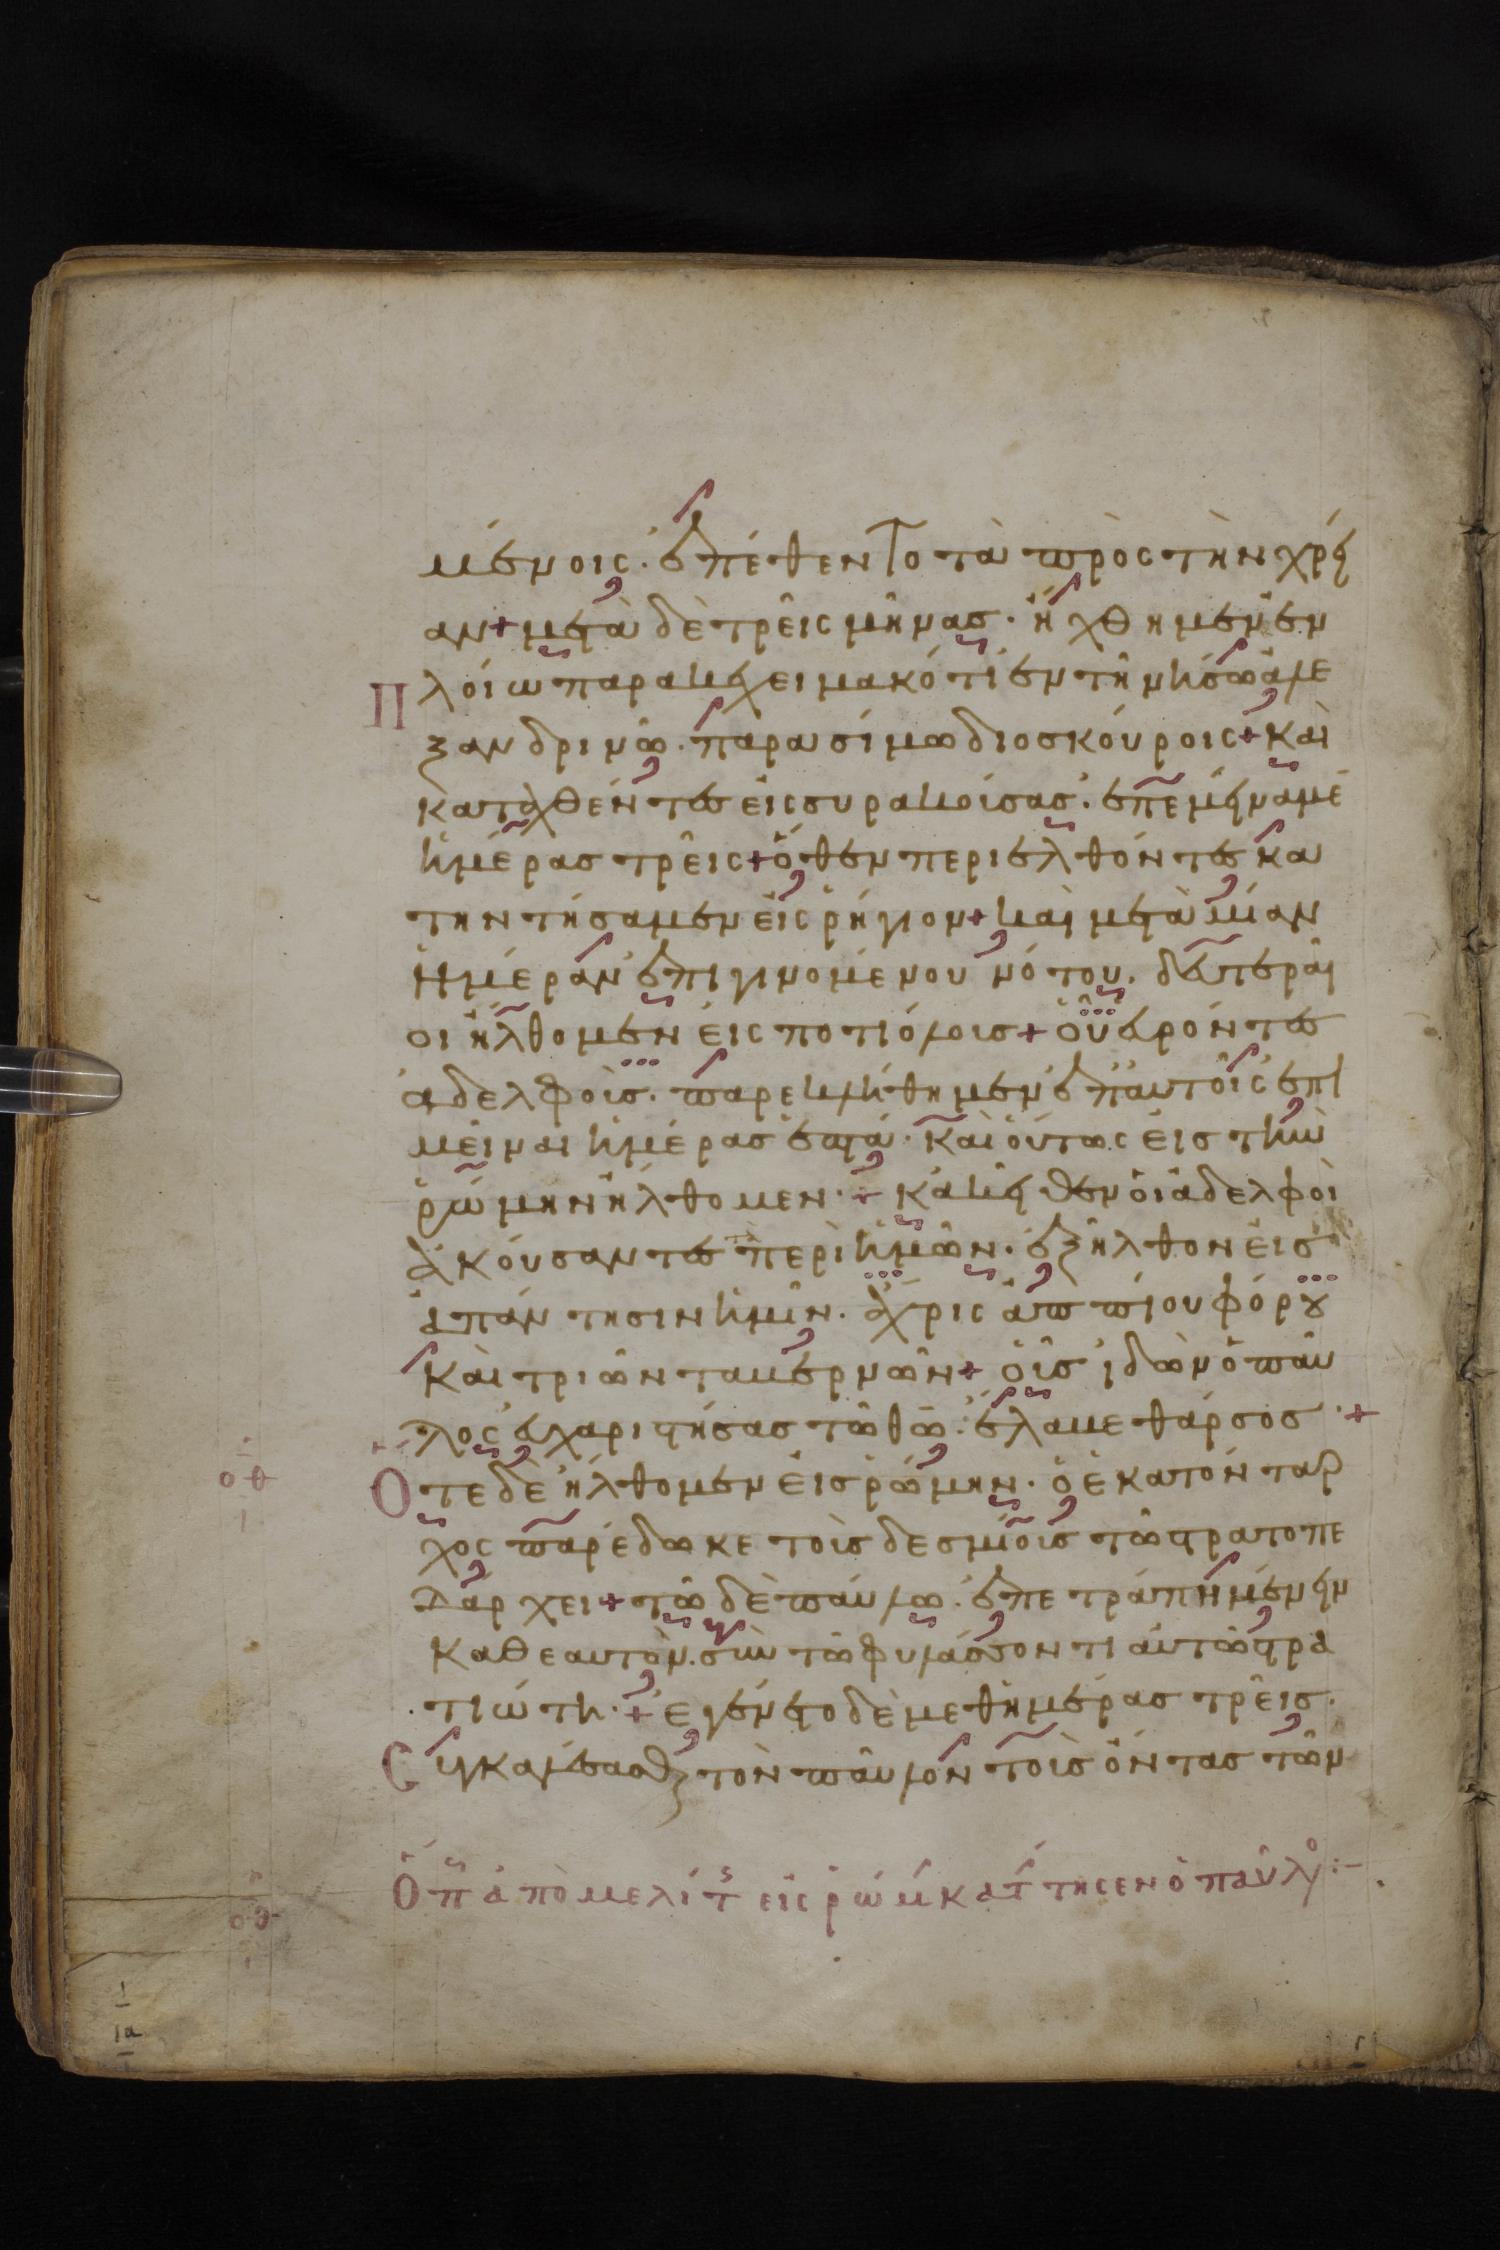 μένοις· ἐπέθεντο τὰ πρὸς τὴν χρεί
αν + μετὰ δὲ τρεῖς μῆνας· ἤχθημεν ἐν
Πλοίω παρακεχειμακότι ἐν τῆ νήσω ἀλε
ξανδρινῶ· παρασίμω διοσκούροις + καὶ
καταχθέντες εἰς συρακούσας· ἐπεμείναμε
ἡμέρας τρεῖς + ὅθεν περιελθόντες κα
τηντήσαμεν εἰς ῥήγιον + καὶ μετὰ μίαν
ἡμέραν ἐπιγινομένου νότου· δευτεραῖ
οι ἤλθομεν εἰς ποτιόλοις + οὗ εὑρόντες
ἀδελφοὺς· παρεκλήθημεν ἐπ αυτοῖς ἐπι
μεῖναι ἡμέρας ἑπτά· καὶ οὕτως εἰς τὴν
ῥώμην ἤλθομεν· + κἀκεῖθεν οἱ ἀδελφοὶ
ἀκούσαντες τὰ περὶ ἡμῶν· ἐξῆλθον εἰς
ἀπάντησιν ἡμῖν· ἄχρις ἀππίου φόρου
καὶ τριῶν ταβερνῶν + οὓς ἰδὼν ὁ παῦ
λος εὐχαριστήσας τῶ θῶ· ἔλαβε θάρσος· +
Οτε δὲ ἤλθομεν εἰς ῥώμην· ὁ ἑκατόνταρ
χος παρέδωκε τοὺς δεσμίους τῶ στρατοπε
δάρχει + τῶ δὲ παύλω· ἐπετράπη μένειν
καθεαυτὸν· σὺν τῶ φυλάσσοντι αὐτὸ στρα
τιώτη· + ἐγένετο δὲ μεθημέρας τρεῖς·
Συγκαλέσασθαι τὸν παῦλον τοὺς ὄντας τῶν
Ὅπ ἀπὸ μελίτ εἰς ῥώμ κατ τησεν ὁ παῦλο :–